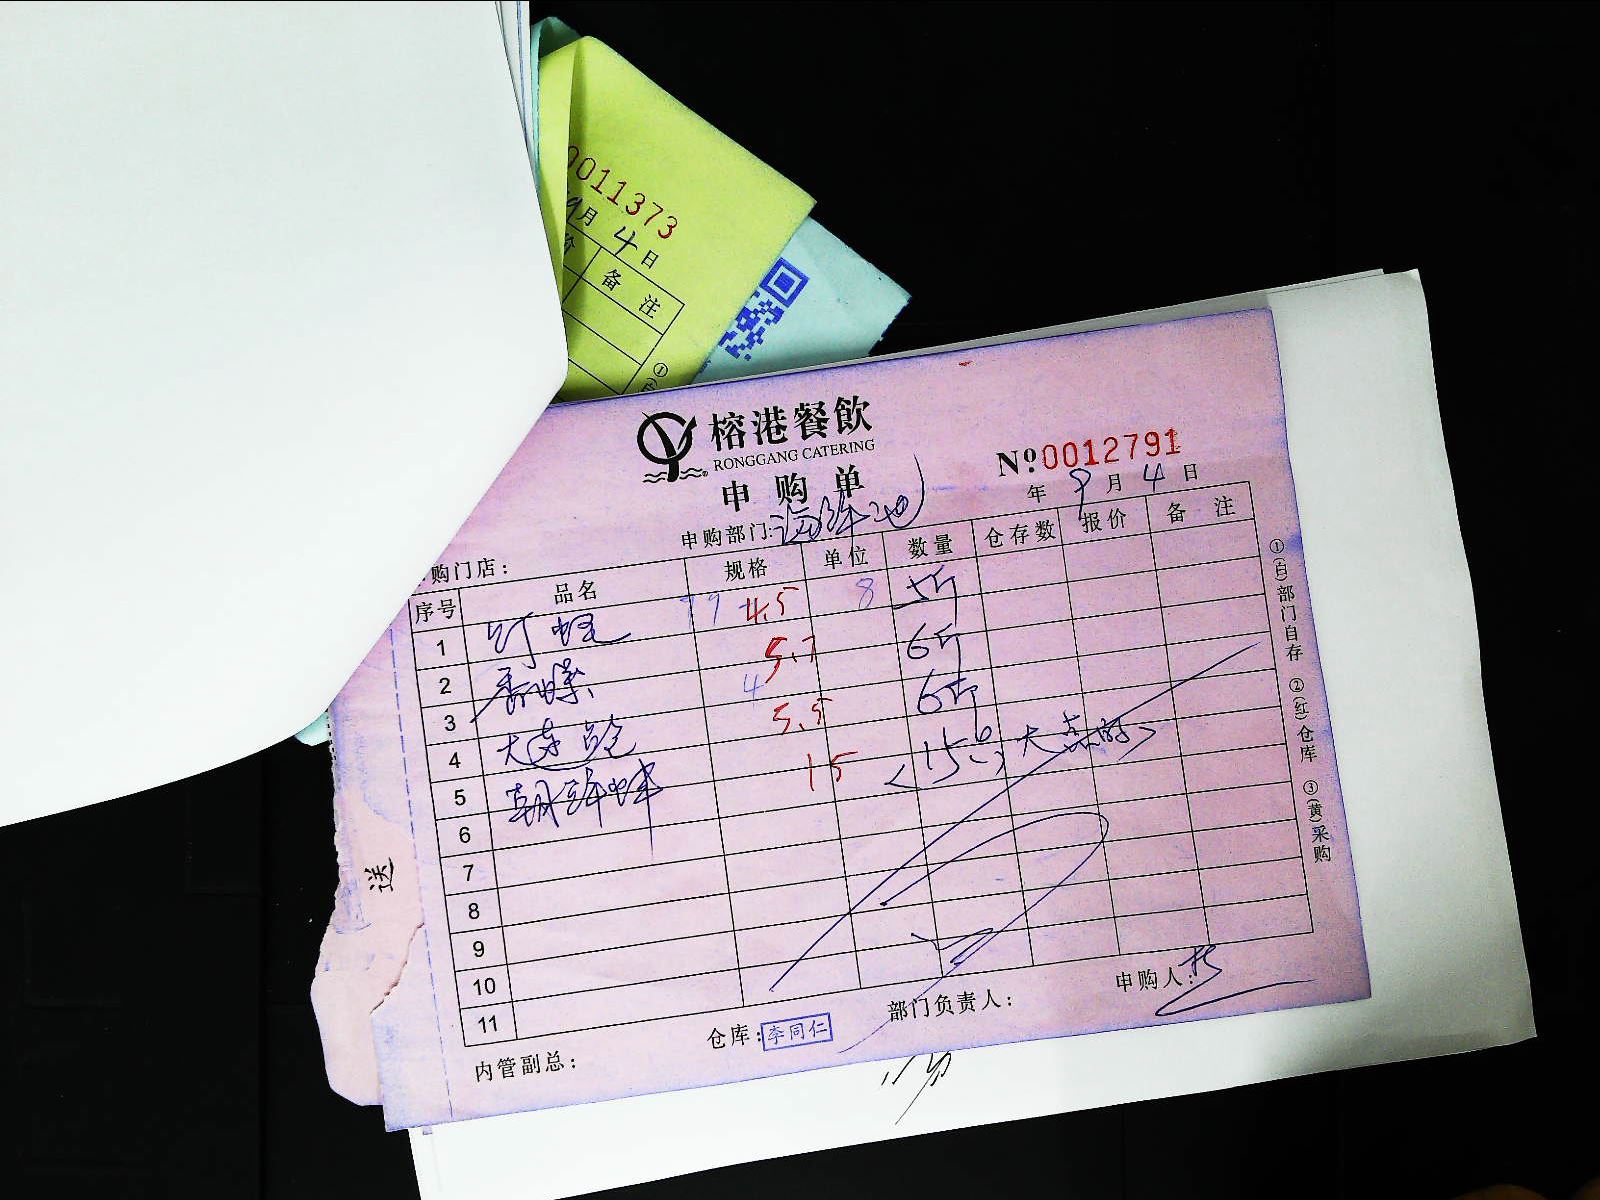 0011373
9月4日
备 注
榕港餐飲
RONGGANG CATERING
申购单
№0012791
年 9 月 4 日
申购部门:海鲜池
购门店:
序号 品名 规格 单位 数量 仓存数 报价 备 注
1 4.5 8 5斤
2 5.7 6斤
3 4 5.5 6斤
4 大连鲍 15 15
5
6
7
8
9
10
11
①(白)部门自存 ②(红)仓库 ③(黄)采购
送
内管副总:
仓库:李同仁
部门负责人:
申购人: